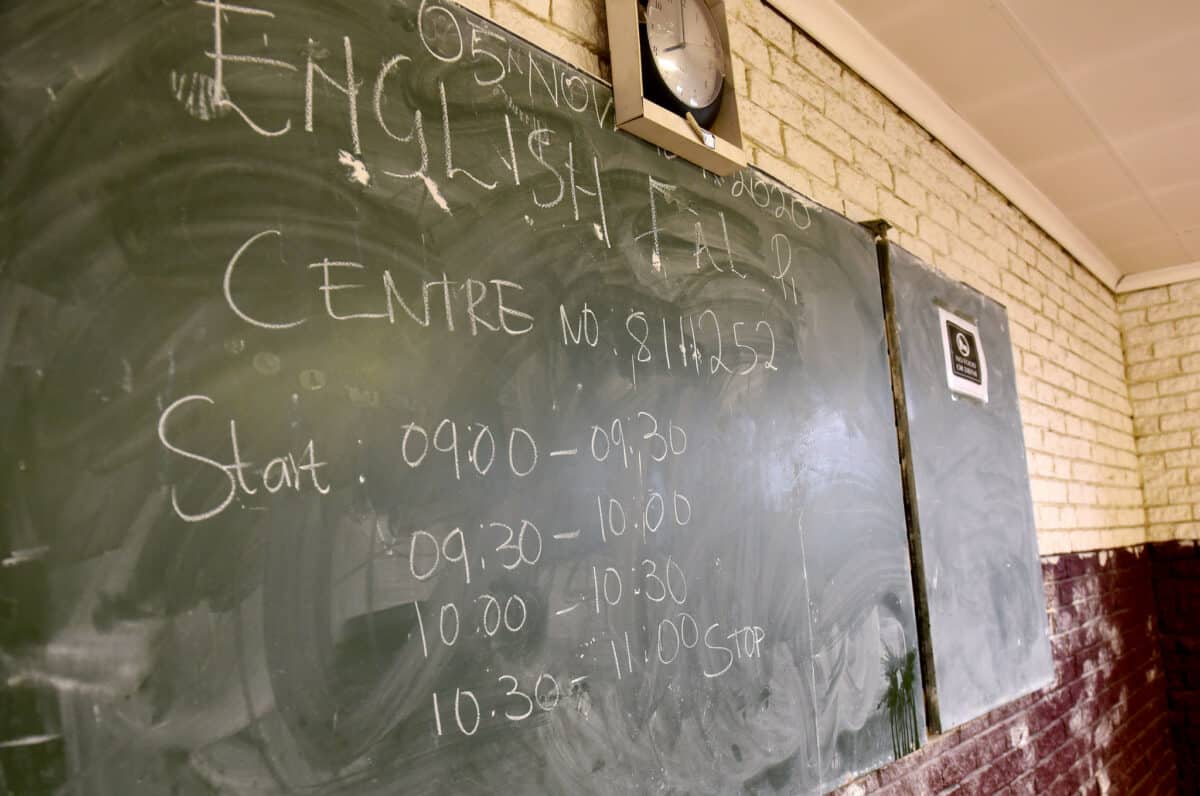 05 NOV 2020
ENGLISH FAL P1
CENTRE NO: 8111252
Start : 09:00 - 09:30
09:30 - 10:00
10:00 - 10:30
10:30 - 11:00 STOP
NO FOOD
OR DRINK